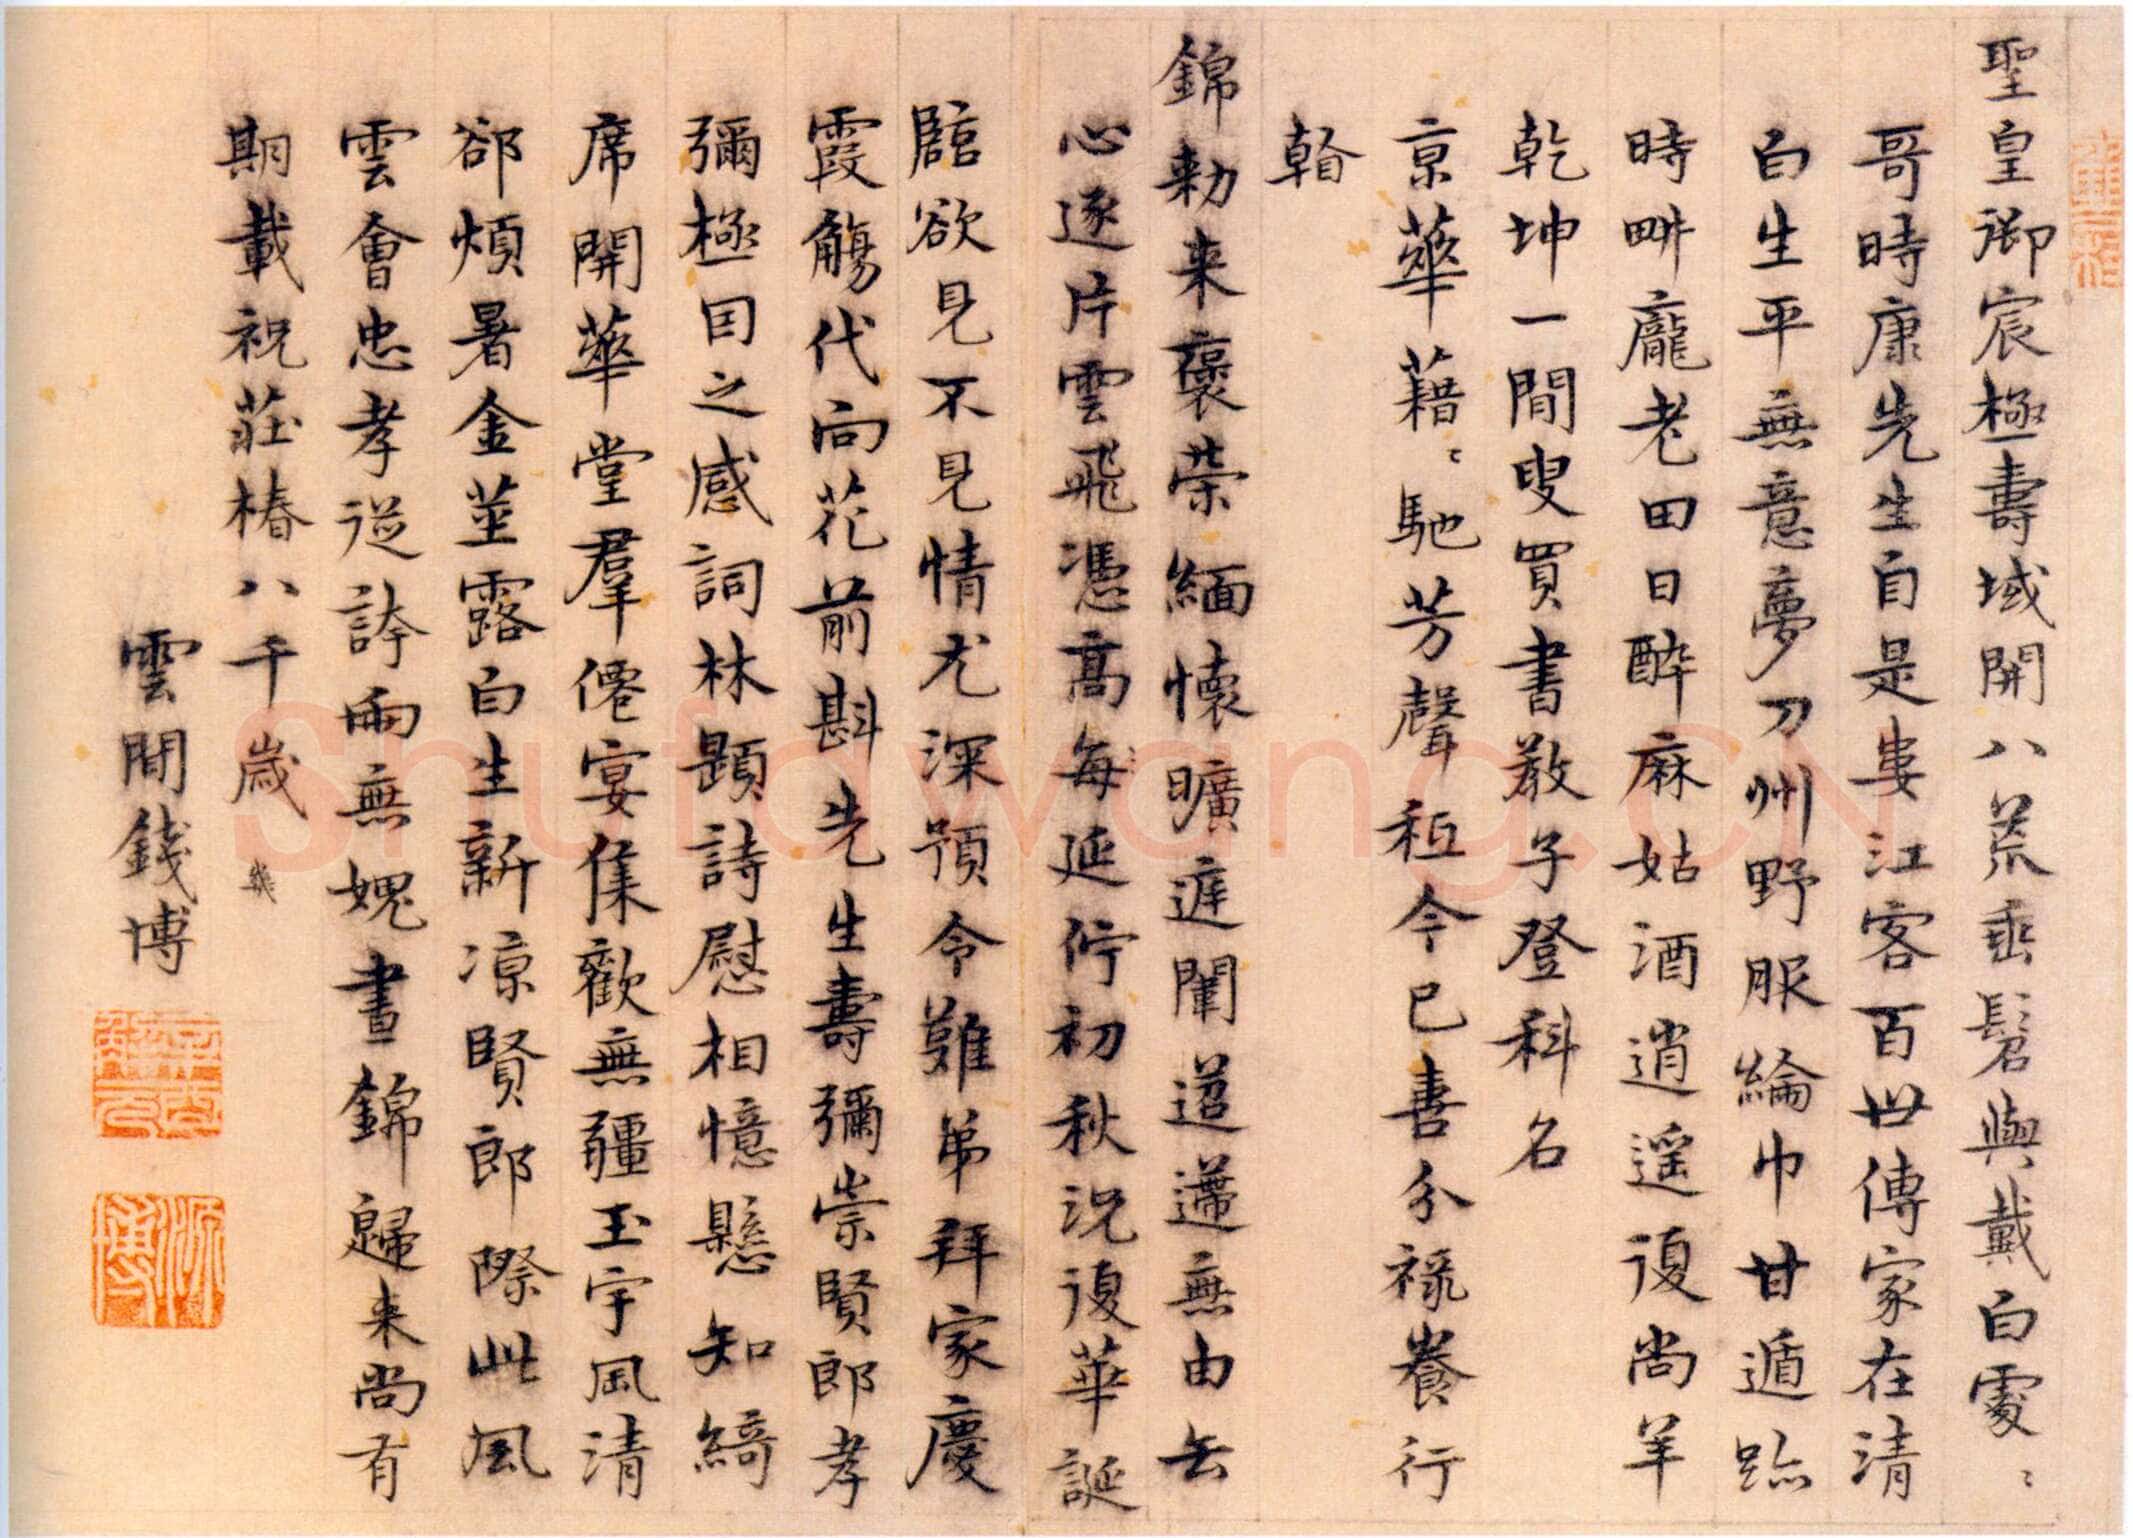 聖皇御宸極壽域開八荒垂髫與戴白處〻
哥時康先生自是婁江客百世傳家在清
白生平無意夢刀州野服綸巾甘遁跡
時畊龐老田日醉麻姑酒逍遥復尚羊
乾坤一閒叟買書教子登科名
京華藉〻馳芳聲秪今已喜分祿養行
翰
錦勑来褒荣緬懷曠遅闈迢遰無由去
心逐片雲飛憑高每延佇初秋况復華誕
臨欲見不見情尤深預令難弟拜家慶
霞觴代向花前斟先生壽彌崇賢郎孝
彌極因之感詞林題詩慰相憶懸知綺
席開華堂羣僊宴集歡無疆玉宇風清
卻煩暑金莖露白生新凉賢郎際此風
雲會忠孝從誇兩無媿晝錦歸来尚有
期載祝莊椿八千歳
雲間錢博
Shufawang.CN